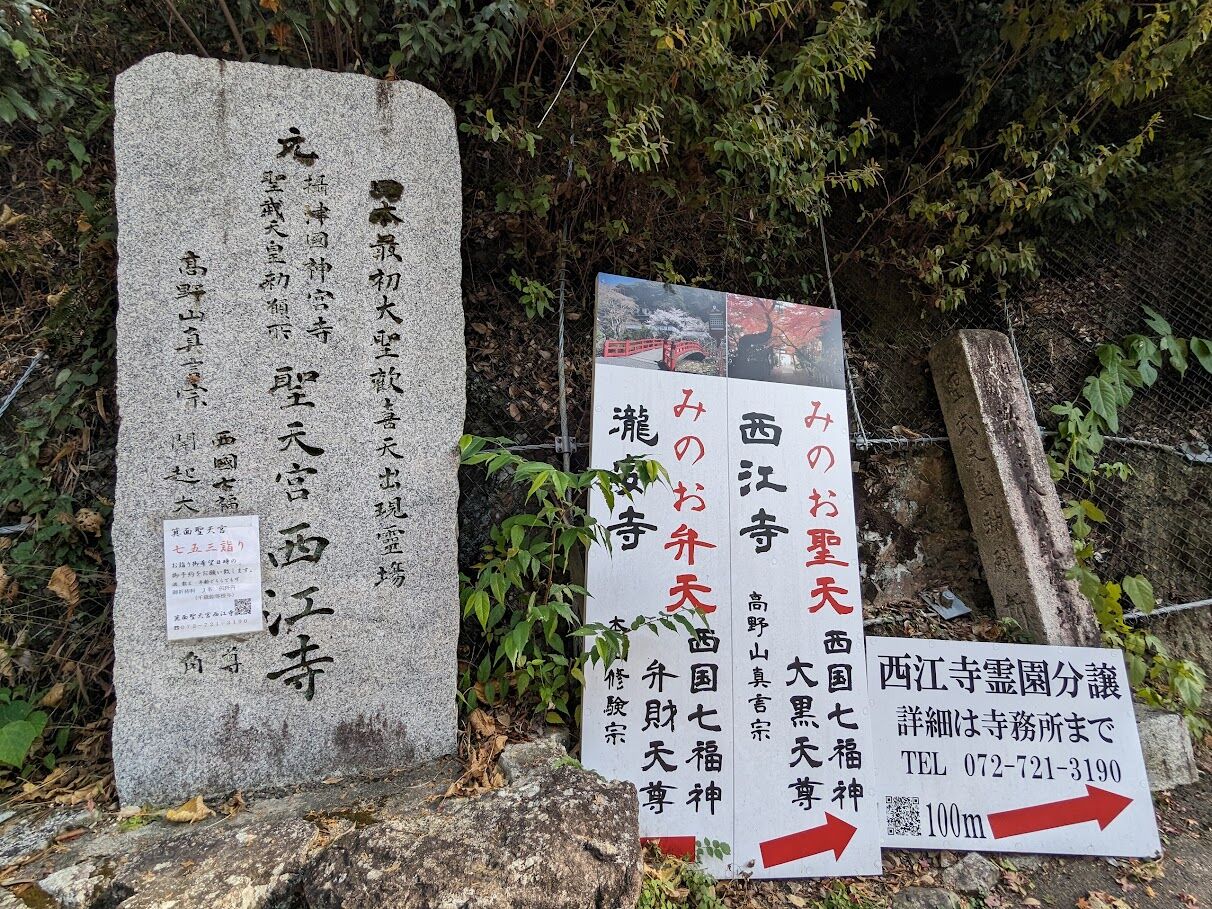 日本最初大聖歓喜天出現霊場
元
攝津國神宮寺
聖武天皇勅願所
聖天宮西江寺
高野山真言宗
西國七福
開起大
尊
角
箕面聖天宮
七五三詣り
お詣り御希望日時の
御予約をお願い致します。
箕面聖天宮西江寺
☎072-721-3190
みのお弁天
瀧安寺
西国七福神
弁財天尊
修験宗
みのお聖天
西江寺
西国七福神
大黒天尊
高野山真言宗
西江寺霊園分譲
詳細は寺務所まで
TEL 072-721-3190
100m